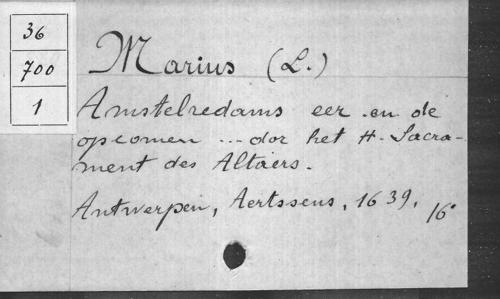 36
700
1
Marius (L.)
Amstelredams eer en de
opcomen ... dor het H. Sacra-
ment des Altaers.
Antwerpen, Aertssens, 1639, 16°